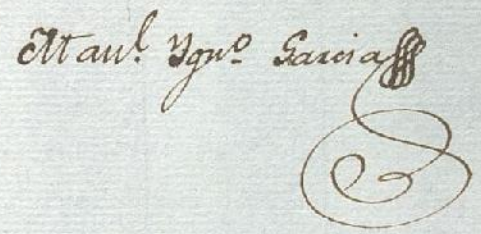 Man.l Ygn.o Garcia